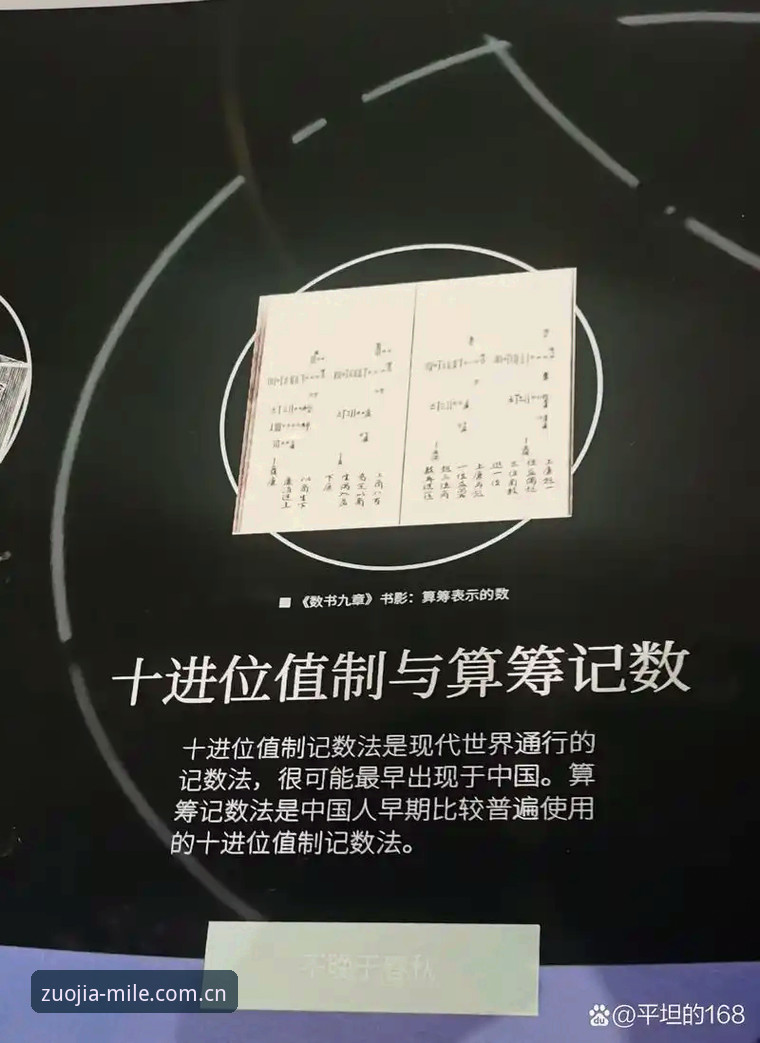 ■《数书九章》书影：算筹表示的数
十进位值制与算筹记数
十进位值制记数法是现代世界通行的
记数法，很可能最早出现于中国。算
筹记数法是中国人早期比较普遍使用
的十进位值制记数法。
不晚于春秋
zuojia-mile.com.cn
du@平坦的168